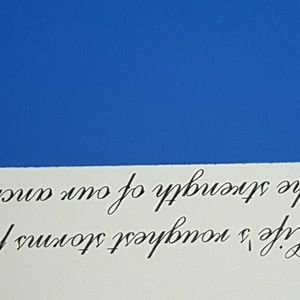 Life's roughest storms
the strength of our